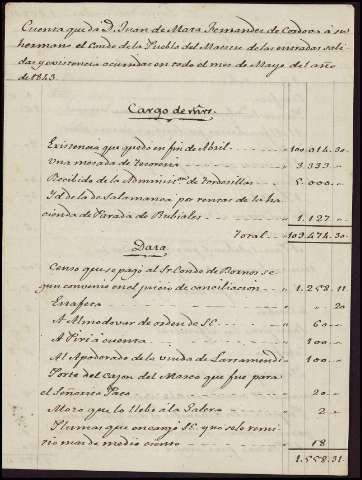 Cuenta que da D. Juan de Mata Fernandez de Cordova á su
hermano el Conde de la Puebla del Maestre de las entradas sali
das y existencia ocurridas en todo el mes de Mayo del año
de 1843.
Cargo de mrs.
Existencia que quedó en fin de Abril 100.014.30
Una mesada de Tesoreria 3.333
Recibido de la Administ.on de Tordesillas 5.000
Yd de la de Salamanca por rentas de la ha
cienda de Parada de Rubiales 1.127
Total 109.474.30
Data
Censo que se pagó al Sr. Conde de Bornos se
gun convenio en el juicio de conciliación 1.258.11
Estafeta 20
A Almodovar de orden de S.E. 60
A Piri á cuenta 100
Al Apoderado de la viuda de Larramendi 100
Porte del cajon del Marco que fue para
el Señorito Paco 20
Mozo que lo llebó á la Galera 2
Plumas que encargó S.E. y se le remi
tió mas de medio ciento 18
1.558.31